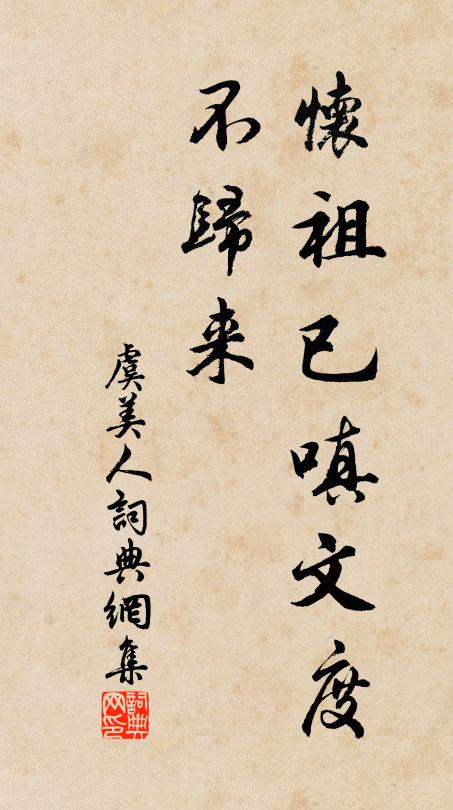 懷祖已嗔文度
不歸来
虞美人詞典網集
詞典
网印